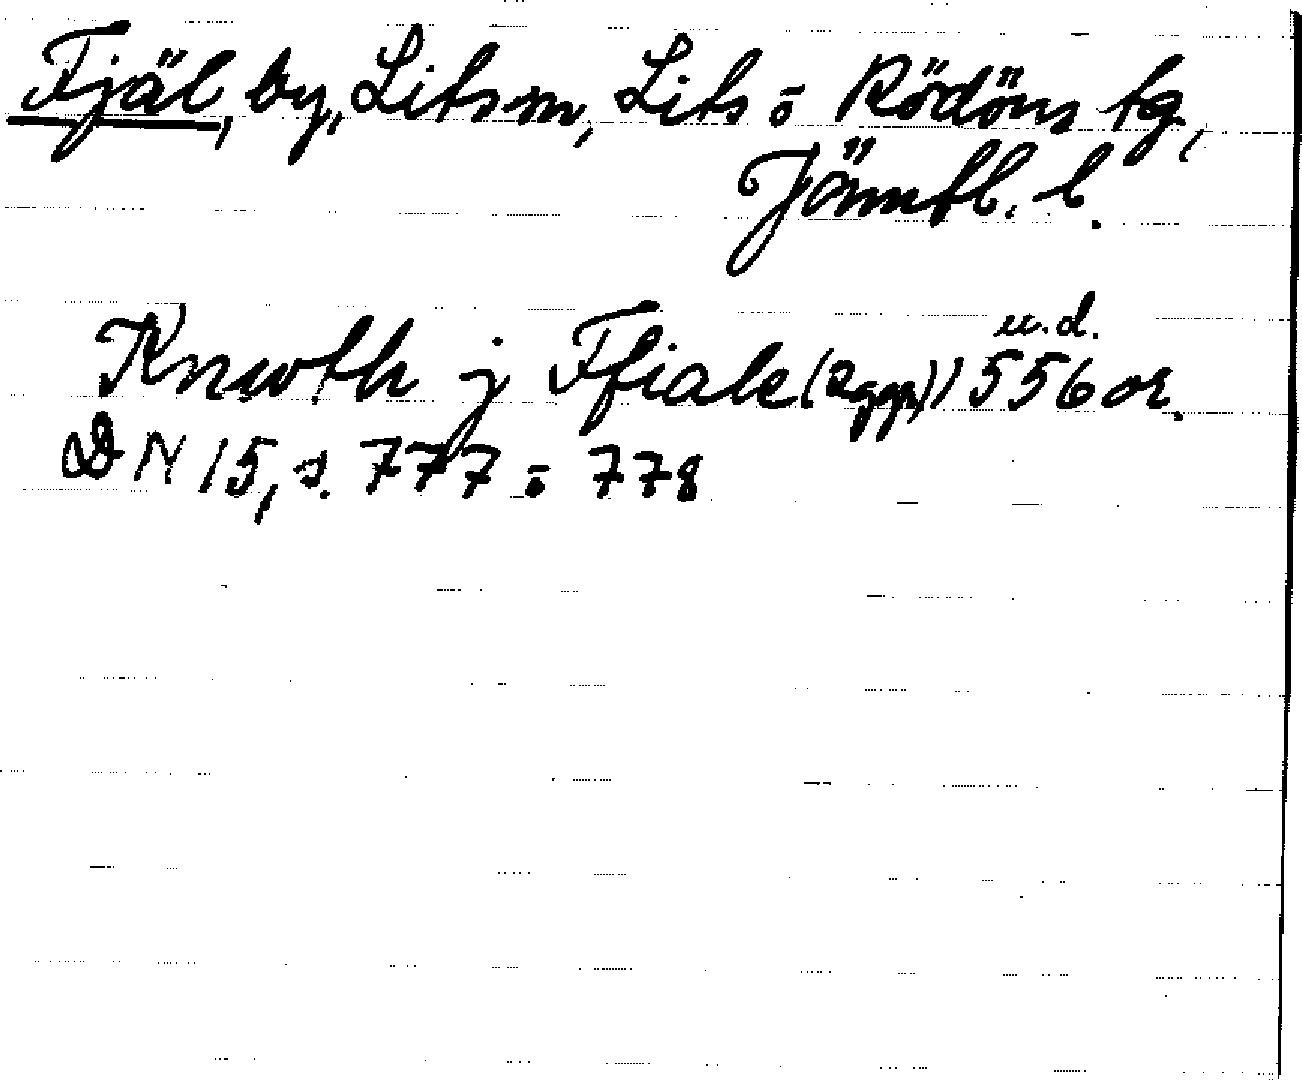 Fjäl, by, Lits sn, Lits o Rödöns tg,
Jämtl. l.
u.d.
Knwth j Ffiale (2 ggr) 1556 or.
DN 15, s. 777 o 778